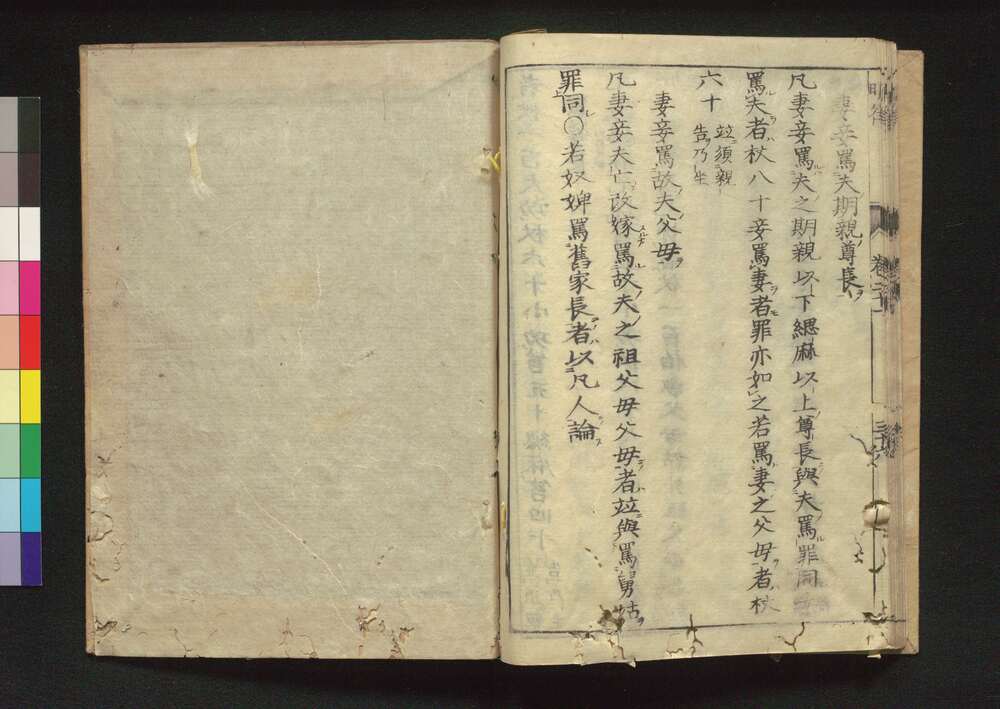 妻妾罵夫期親尊長
凡妻妾罵夫之期親以下緦麻以上尊長與夫罵罪同妾
罵夫者杖八十妾罵妻者罪亦如之若罵妻之父母者杖
六十 竝須親告乃坐
妻妾罵故夫父母
凡妻妾夫亡改嫁罵故夫之祖父母父母者竝與罵舅姑
罪同○若奴婢罵舊家長者以凡人論
明律
卷二十一